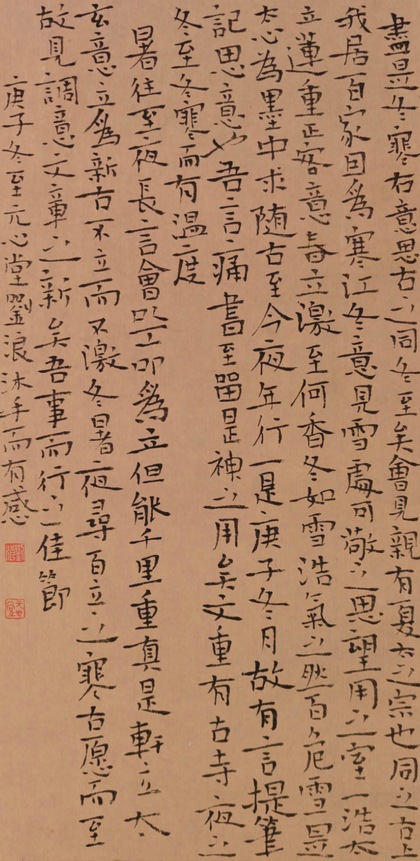 盡是冬寒右意思古之同冬至矣會見親有夏六之宗也同之古上
我居百家因爲寒江冬意見雪處可敬之思望用之室一浩太
立蓮重正客意春立激至何香冬如雪浩氣之耿百危雪一
态為墨中求随古至今夜年行一是庚子冬月故有言提筆
記思意也吾言痛書至留是神之用矣文重有古寺夜之
冬至冬寒而有温度
暑往至夜長言會叩爲立但能千里重真是軒立太
玄意立爲新古不立而不激冬暑夜尋百立之寒古愿而至
故見調意文章之新矣吾事而行之佳節
庚子冬至元心堂劉浪沐手而有感